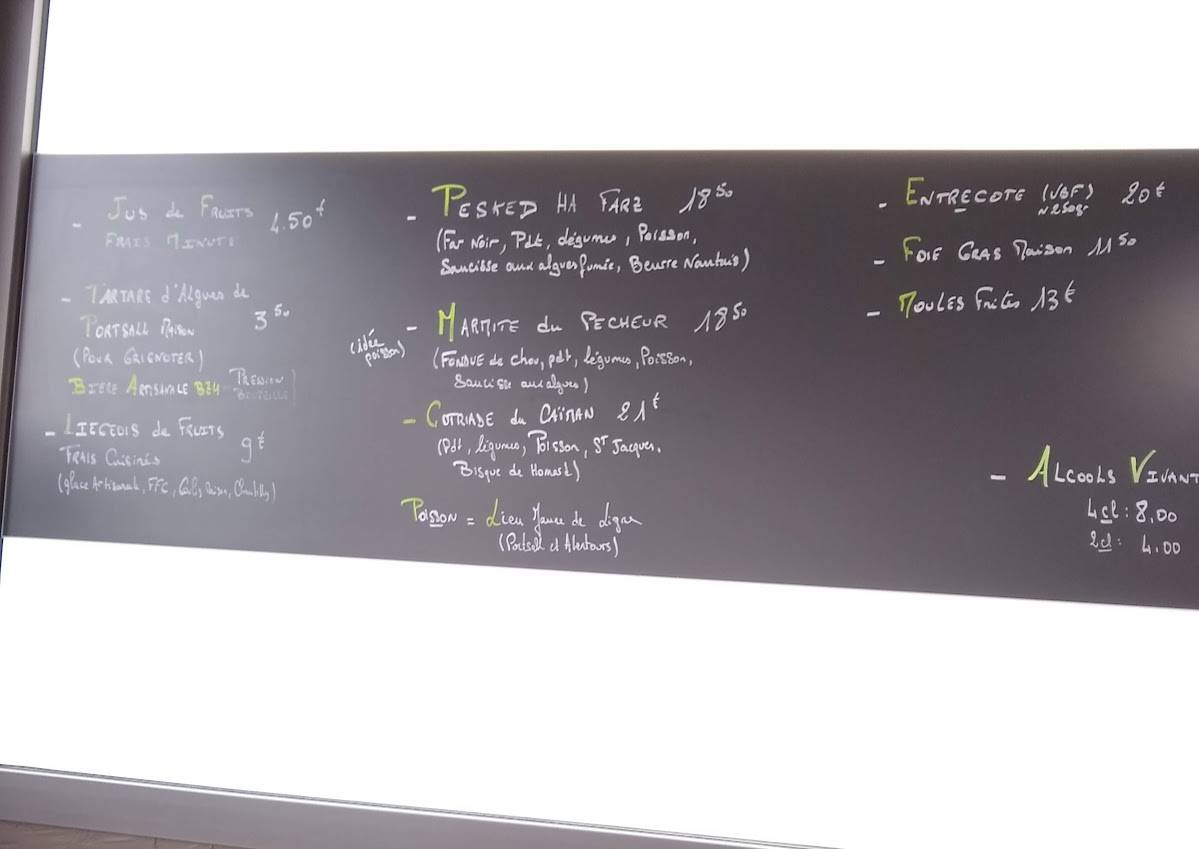 - JUS de FRUITS
FRAIS MINUTE 4.50€
- TARTARE d'Algues de
PORTSALL MAISON 3 50
(POUR GRIGNOTER)
BIERE ARTISANALE - PRESSION
BOUTEILLE
- LIEGEOIS de FRUITS
FRAIS Cuisinés 9€
(glace Artisanale, FFC, Chantilly)
- PESKED HA FARZ 18 50
(Far Noir, Pdt, légumes, Poisson,
Saucisse aux algues fumée, Beurre Nantais)
(idée
poisson)
- MARMITE du PECHEUR 18 50
(FONDUE de chou, pdt, légumes, Poisson,
Saucisse aux algues)
- COTRIADE du CAÏMAN 21€
(Pdt, légumes, Poisson, ST Jacques,
Bisque de Homard)
POISSON = Lieu Jaune de Ligne
(Portsall et Alentours)
- ENTRECOTE (VBF) 20€
~250gr
- FOIE GRAS Maison 11 50
- MOULES Frites 13€
- ALCOOLS VIVANT
4cl : 8,00
2cl : 4.00